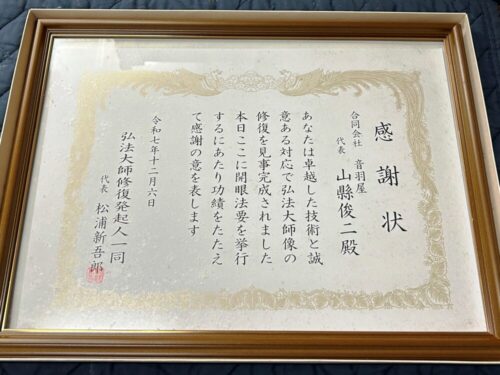 感謝状
合同会社 音羽屋
代表 山縣俊二殿
あなたは卓越した技術と誠
意ある対応で弘法大師像の
修復を見事完成されました
本日ここに開眼法要を挙行
するにあたり功績をたたえ
て感謝の意を表します
令和七年十二月六日
弘法大師修復発起人一同
代表 松浦新吾郎